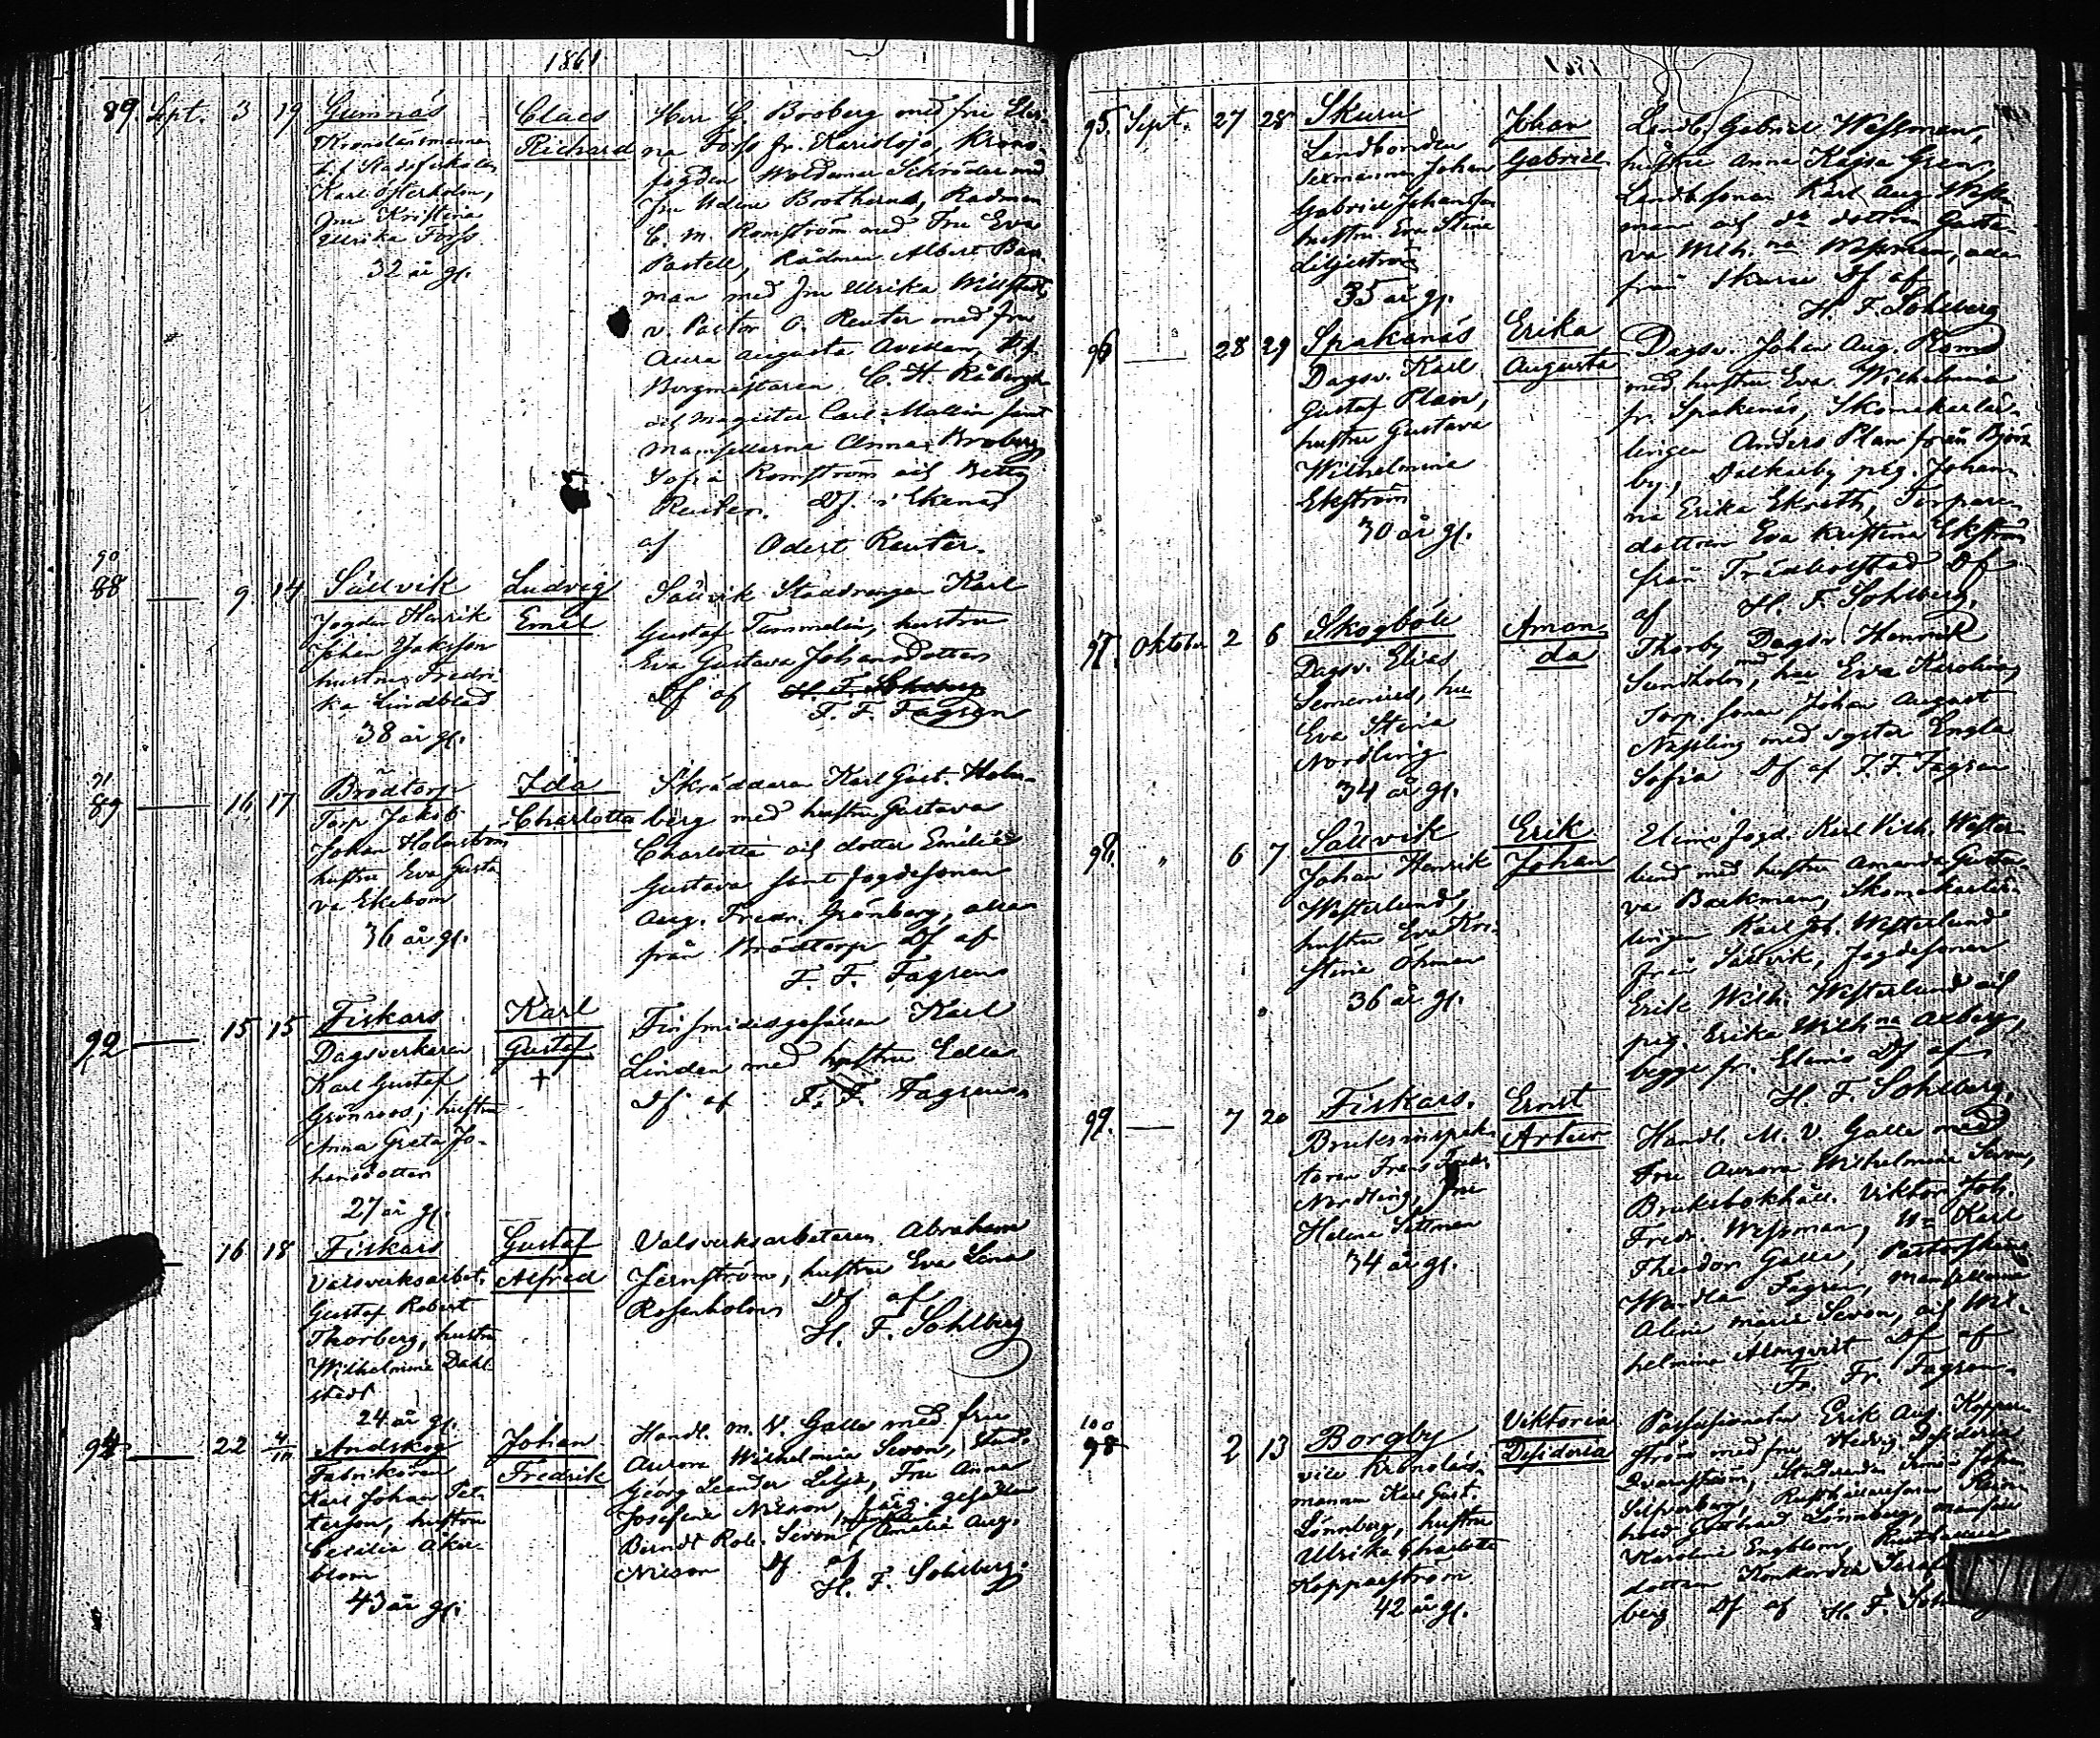 1861
89 Sept. 3 19 Gumnäs
Kronolänsmannen
t.f. Stadsfiskalen
Karl Österholm,
fru Kristina
Ulrika Forss
32 år gl.
Claes
Richard
Herr G. Broberg med fru
na Forss fr. Karislojo, Krono-
fogden Woldemar Schröder med
fru Brotherus, Rådman
C. M. Romström med Fru Eva
Pastell, Rådman Albert
man med fru Ulrika
v. Pastor O. Reuter med fru
Aura Augusta
Borgmästaren C. H.
och Magister Carl Mallin samt
Mamsellerna Anna Broberg,
Sofia Romström och Betty
Reuter. Df. i Ekenäs
af Odert Reuter.
90
88 — 9 14 Sällvik
Fogden Henrik
Johan Jaksson
hustru Fredri-
ka Lindblad
38 år gl.
Ludvig
Emil
Sällvik Stalldrängen Karl
Gustaf Tammelin, hustru
Eva Gustava Johansdotter
Df af H. F. Sohlberg
F. F. Fagrén
91
89 — 16 17 Brödtorp
Torp. Jakob
Johan Holmström
hustru Eva Gusta
va Ekebom
36 år gl.
Ida
Charlotta
Skräddaren Karl Gust. Holm-
berg med hustru Gustava
Charlotta och dotter Emilia
Gustava samt fogdesonen
Aug. Fredr. Grönberg, alla
från Brödtorp Df af
F. F. Fagrén
92 — 15 15 Fiskars
Dagsverkaren
Karl Gustaf
Grönroos, hustru
Anna Greta Jo-
hansdotter
27 år gl.
Karl
Gustaf
+
Finsmidesgesällen Karl
Lindén med hustru Edla
Df af F. F. Fagrén
— 16 18 Fiskars
Valsverksarbet.
Gustaf Robert
Thorberg, hustru
Wilhelmina Dahl-
stedt
24 år gl.
Gustaf
Alfred
Valsverksarbetaren Abraham
Jernström, hustru Eva Lena
Rosenholm Df af
H. F. Sohlberg
94 — 22 4/10 Andskog
Fabrikören
Karl Johan Pet-
terson, hustru
Cecilia Åker-
blom
43 år gl.
Johan
Fredrik
Handl. M. V. Galle med fru
Aurora Wilhelmina Sevon,
Georg Leander Lilje, Fru Anna
Josefina Nilson, färg. gesällen
Berndt Rob. Sevon, Amalia Aug.
Nilson Df af
H. F. Sohlberg.
95. Sept. 27 28 Skuru
Landbonden
sexmannen Johan
Gabriel Johansson
hustru Eva Stina
Liljeström
35 år gl.
Johan
Gabriel
Landb. Gabriel Wessman,
hustru Anna Kajsa Grén,
Landb.sonen Karl Aug. Wess-
man och do dottren Gusta-
va Wilh.na Wessman, alla
från Skuru Df af
H. F. Sohlberg
96 — 28 29 Spakanäs
Dagsv. Karl
Gustaf Plan,
hustru Gustava
Wilhelmina
Ekström
30 år gl.
Erika
Augusta
Dagsv. Johan Aug.
med hustru Eva Wilhelmina
fr. Spakanäs, Skomakarlär-
lingen Anders Plan från Björs
by, Dalkarby pig. Johan-
na Erika Ekroth, Torpare-
dottren Eva Kristina Ekström
från Trädbolstad Df
af H. F. Sohlberg,
97. Oktober 2 6 Skogböle
Dagsv. Elias
Semenius, hu
Eva Stina
Nordling
34 år gl.
Aman-
da
Thorby Dagsv. Henrik
Sundholm, med hu Eva Karolina,
Torp. sonen Johan August
Nyssling med syster Engla
Sofia Df af F. F. Fagrén
98. " 6 7 Sällvik
Johan Henrik
Westerlund,
hustru Eva Kri-
stina Öhman
36 år gl.
Erik
Johan
Elimo fogd. Karl Vilh. Wester-
lund med hustru Amanda Gusta-
va Backman, Skomakarlär-
lingen Karl Joh. Westerlund
från Sällvik, Fogdesonen
Erik Wilh. Westerlund och
pig. Erika Wilh.na Axberg,
begge fr. Elimo Df af
H. F. Sohlberg.
99. — 7 20 Fiskars.
Bruksinspek-
toren Frans Fredr.
Nordling, fru
Helena Littman
34 år gl.
Ernst
Artur
Handl. M. V. Galle med
Fru Aurora Wilhelmina Sevon,
Bruksbokhåll. Viktor Joh.
Fredr. Wessman, Karl
Theodor Galle,
Fagrén, mamsellerna
Alina Maria Sevon, och Wil-
helmina Almqvist Df af
Fr. Fr. Fagrén.
100
98 2 13 Borgby
vice Kronoläns-
mannen Karl Gust.
Lönnberg, hustru
Ulrika Charlotta
Kopparström
42 år gl.
Viktoria
Desideria
Possessionaten Erik Aug. Koppar-
ström med fru Hedvig Desideria
Qvarnström, Studeranden
Silfverberg, Rusthållaresonen Rein-
hold Gotthard Lönnberg, mamsell
Karolina Engblom, Rusthållare
dottren Konkordia
berg Df af H. F.